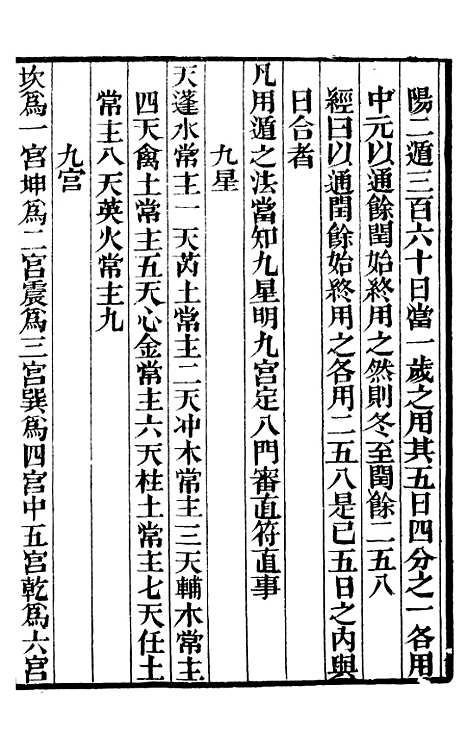 陽二遁三百六十日當一歲之用其五日四分之一各用
中元以通餘閏始終用之然則冬至閏餘二五八
經曰以通閏餘始終用之各用二五八是已五日之內與
日合者
凡用遁之法當知九星明九宫定八門審直符直事
九星
天蓬水常主一天芮土常主二天冲木常主三天輔木常主
四天禽土常主五天心金常主六天柱土常主七天任土
常主八天英火常主九
九宫
坎爲一宮坤爲二宮震爲三宮巽爲四宮中五宮乾爲六宮